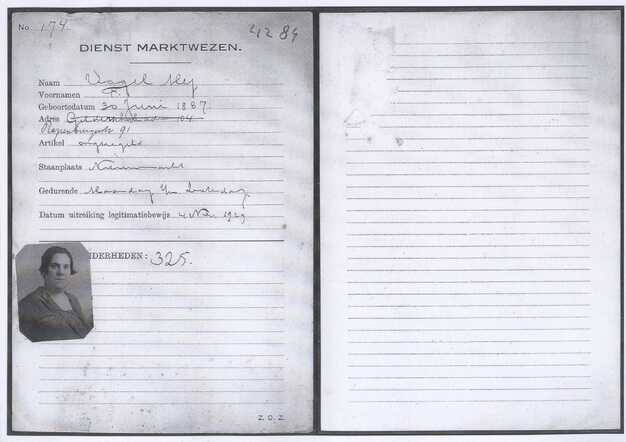 No. 174. 4284
DIENST MARKTWEZEN.
Naam Vogel Mej
Voornamen F.
Geboortedatum 30 Juni 1887.
Adres 104
91
Artikel ongeregeld
Staanplaats Nieuwmarkt
Gedurende Maandag t/m Zaterdag
Datum uitreiking legitimatiebewijs 4 Nov. 1929
NDERHEDEN: 325.
Z. O. Z.